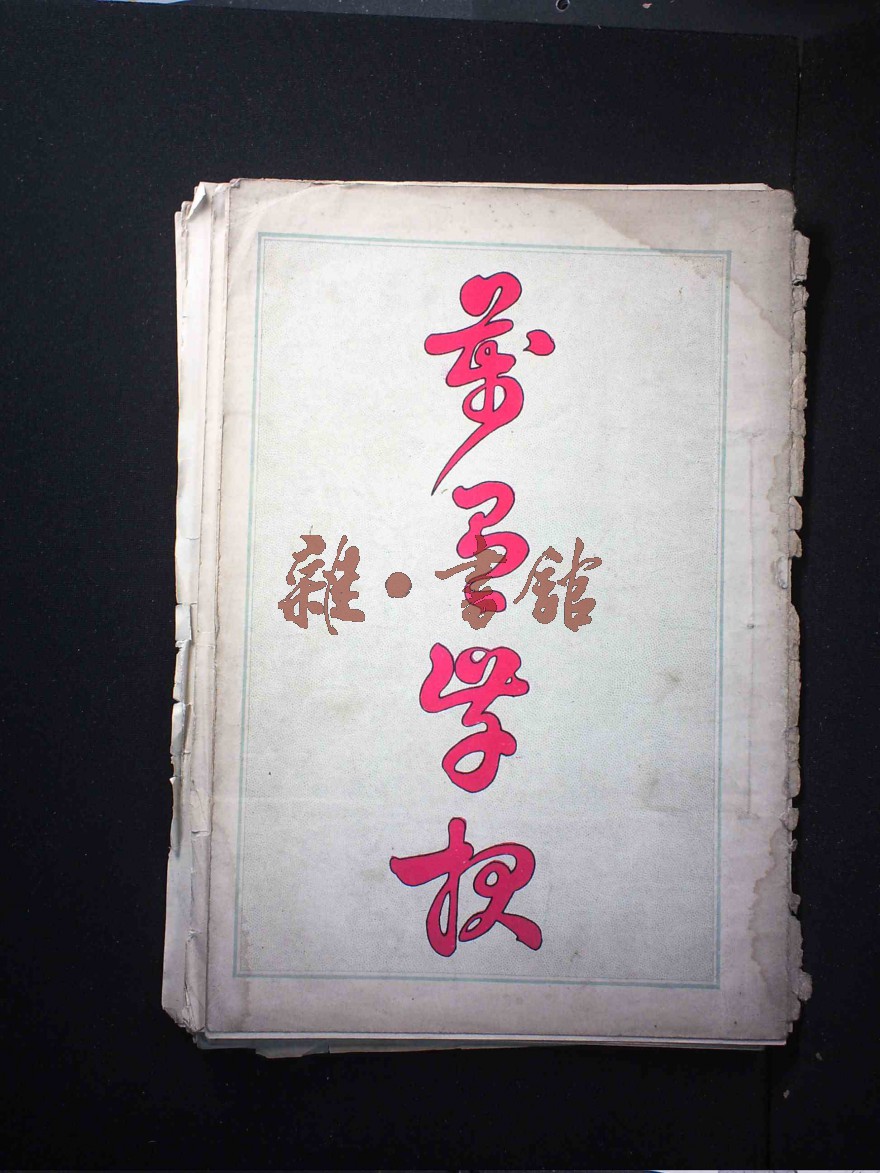 萬
学校
雜·書館